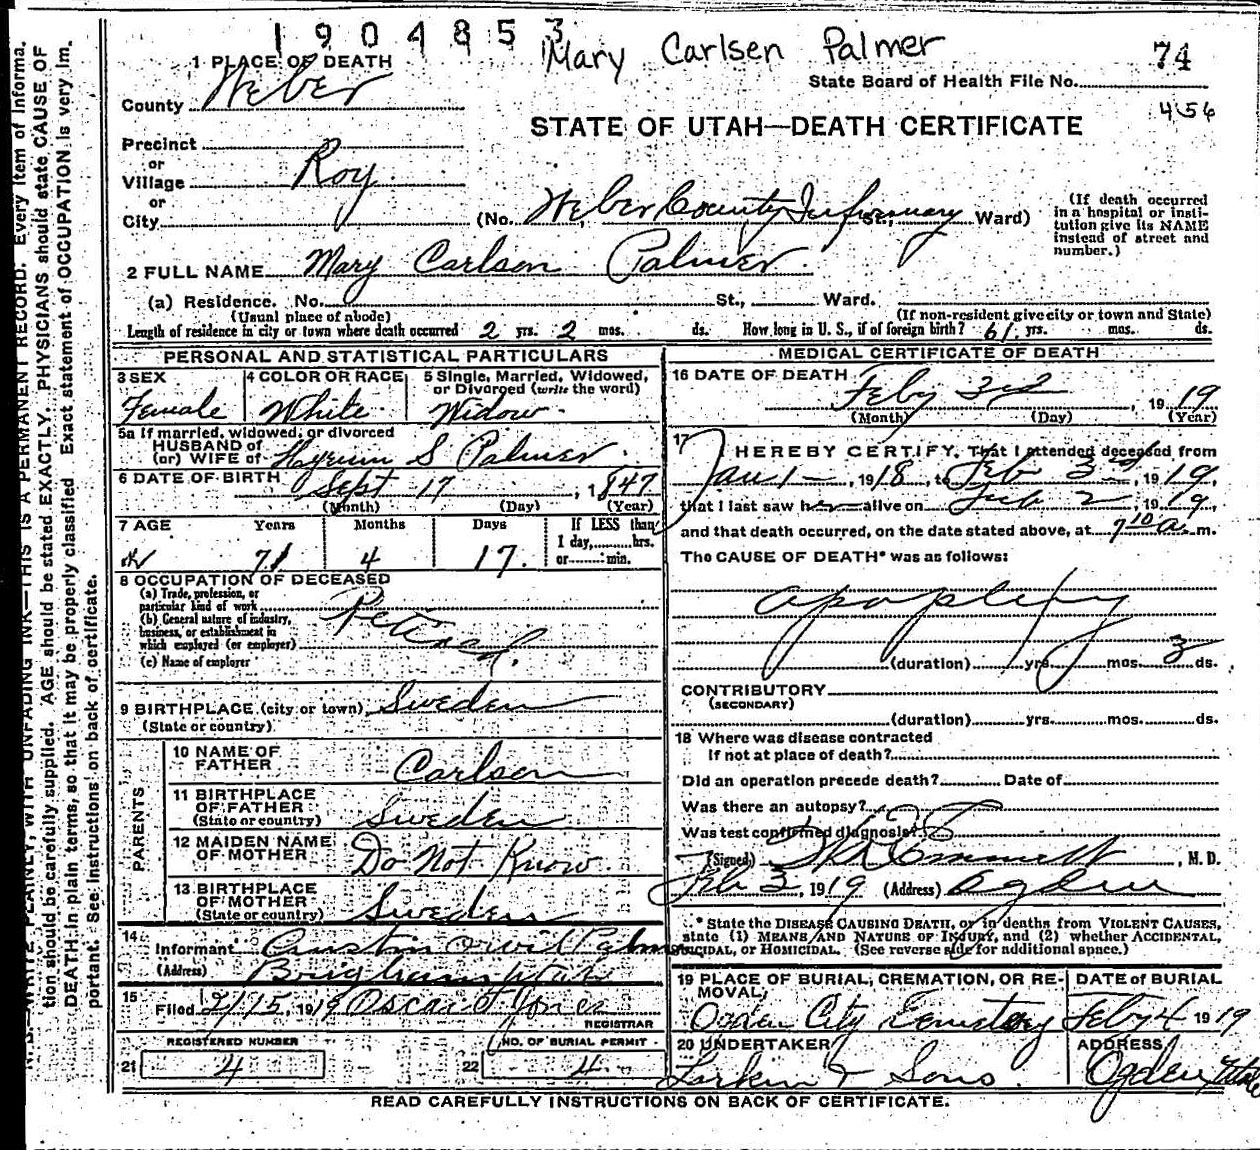 1904853
Mary Carlsen Palmer
74
State Board of Health File No.
456
1 PLACE OF DEATH
County Weber
STATE OF UTAH—DEATH CERTIFICATE
Precinct
or
Village Roy
or
City
(No. Weber County Infirmary St., Ward)
(If death occurred
in a hospital or insti-
tution give its NAME
instead of street and
number.)
2 FULL NAME Mary Carlson Palmer
(a) Residence. No. St., Ward.
(Usual place of abode) (If non-resident give city or town and State)
Length of residence in city or town where death occurred 2 yrs. 2 mos. ds. How long in U. S., if of foreign birth? 61 yrs. mos. ds.
PERSONAL AND STATISTICAL PARTICULARS
3 SEX 4 COLOR OR RACE 5 Single, Married, Widowed,
or Divorced (write the word)
Female White Widow
5a If married, widowed, or divorced
HUSBAND of
(or) WIFE of Hyrum S Palmer
6 DATE OF BIRTH Sept 17, 1847
(Month) (Day) (Year)
7 AGE Years Months Days If LESS than
1 day, hrs.
or min.
71 4 17.
8 OCCUPATION OF DECEASED
(a) Trade, profession, or
particular kind of work
(b) General nature of industry,
business, or establishment in
which employed (or employer)
Retired.
(c) Name of employer
9 BIRTHPLACE (city or town) Sweden
(State or country)
PARENTS
10 NAME OF
FATHER Carlson
11 BIRTHPLACE
OF FATHER
(State or country) Sweden
12 MAIDEN NAME
OF MOTHER Do Not Know
13 BIRTHPLACE
OF MOTHER
(State or country) Sweden
14
Informant Austin Orvil Palmer
(Address) Brigham Utah
15
Filed 2/15, 1919 Oscar Jones
REGISTRAR
REGISTERED NUMBER NO. OF BURIAL PERMIT
21 4 22 4
MEDICAL CERTIFICATE OF DEATH
16 DATE OF DEATH Feby 3rd, 1919
(Month) (Day) (Year)
17
I HEREBY CERTIFY, That I attended deceased from
Jan 1, 1918, to Feb 3rd, 1919,
that I last saw her alive on Feb 2, 1919,
and that death occurred, on the date stated above, at 7 10 a. m.
The CAUSE OF DEATH* was as follows:
apoplexy
(duration) yrs. mos. 3 ds.
CONTRIBUTORY
(SECONDARY)
(duration) yrs. mos. ds.
18 Where was disease contracted
If not at place of death?
Did an operation precede death? Date of
Was there an autopsy?
Was test confirmed diagnosis?
(Signed) Emmett, M. D.
Feb 3, 1919 (Address) Ogden
* State the DISEASE CAUSING DEATH, or in deaths from VIOLENT CAUSES,
state (1) MEANS AND NATURE OF INJURY, and (2) whether ACCIDENTAL,
SUICIDAL, or HOMICIDAL. (See reverse side for additional space.)
19 PLACE OF BURIAL, CREMATION, OR RE-
MOVAL,
DATE of BURIAL
Ogden City Cemetery Feby 4 1919
20 UNDERTAKER ADDRESS
Larkin & Sons. Ogden Utah
READ CAREFULLY INSTRUCTIONS ON BACK OF CERTIFICATE.
N. B.—WRITE PLAINLY, WITH UNFADING INK—THIS IS A PERMANENT RECORD. Every item of informa-
tion should be carefully supplied. AGE should be stated EXACTLY. PHYSICIANS should state CAUSE OF
DEATH in plain terms, so that it may be properly classified. Exact statement of OCCUPATION is very im-
portant. See instructions on back of certificate.